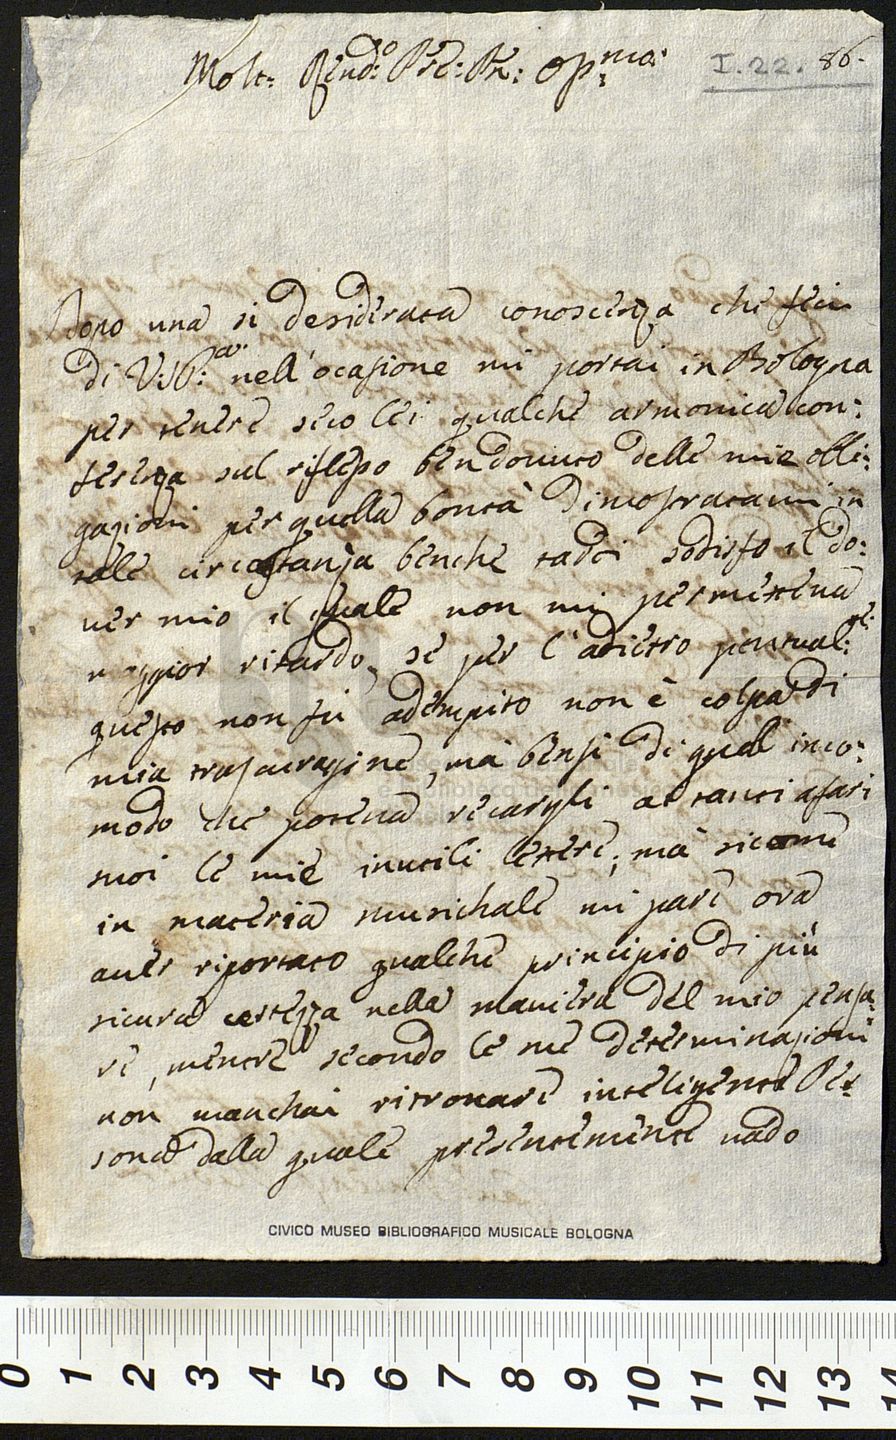 Molt: Rend:o Pre: Pn: Op:mo:
I.22. 86.
Dopo una si desiderata conoscenza che feci
di V: P:tà: nell'ocasione mi portai in Bologna
per tenere seco lei qualche armonica con:
ferenza sul riflesso ben dovuto delle mie obli:
gazioni per quella bontà dimostratami in
tale circostanza benche tardi sodisfo il do:
ver mio il quale non mi permeteva
maggior ritardo, se per l'adietro pontual:
questo non fù adempito non è colpa di
mia trascuragine, mà bensi di qual inco:
modo che poteva recargli at tanti afari
suoi le mie inutili letere; mà sicome
in materia musichale mi pare ora
aver riportato qualche principio di più
sicura certezza nella maniera del mio pensa:
re, mentre secondo le sue determinazioni
non manchai ritrovare inteligente Per:
sona dalla quale presentemente vado
CIVICO MUSEO BIBLIOGRAFICO MUSICALE BOLOGNA
0 1 2 3 4 5 6 7 8 9 10 11 12 13 14